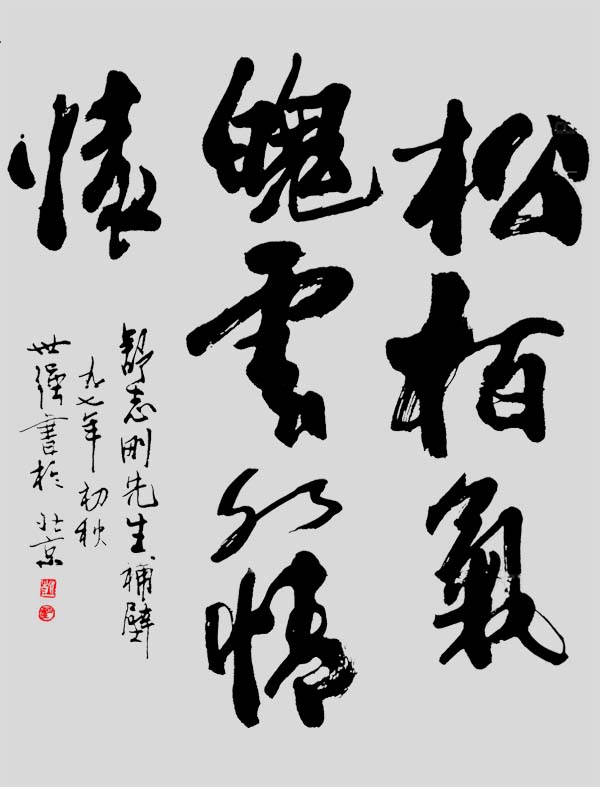 松柏氣
魄雲水情
懷
舒志刚先生補壁
九七年初秋
世强書於北京